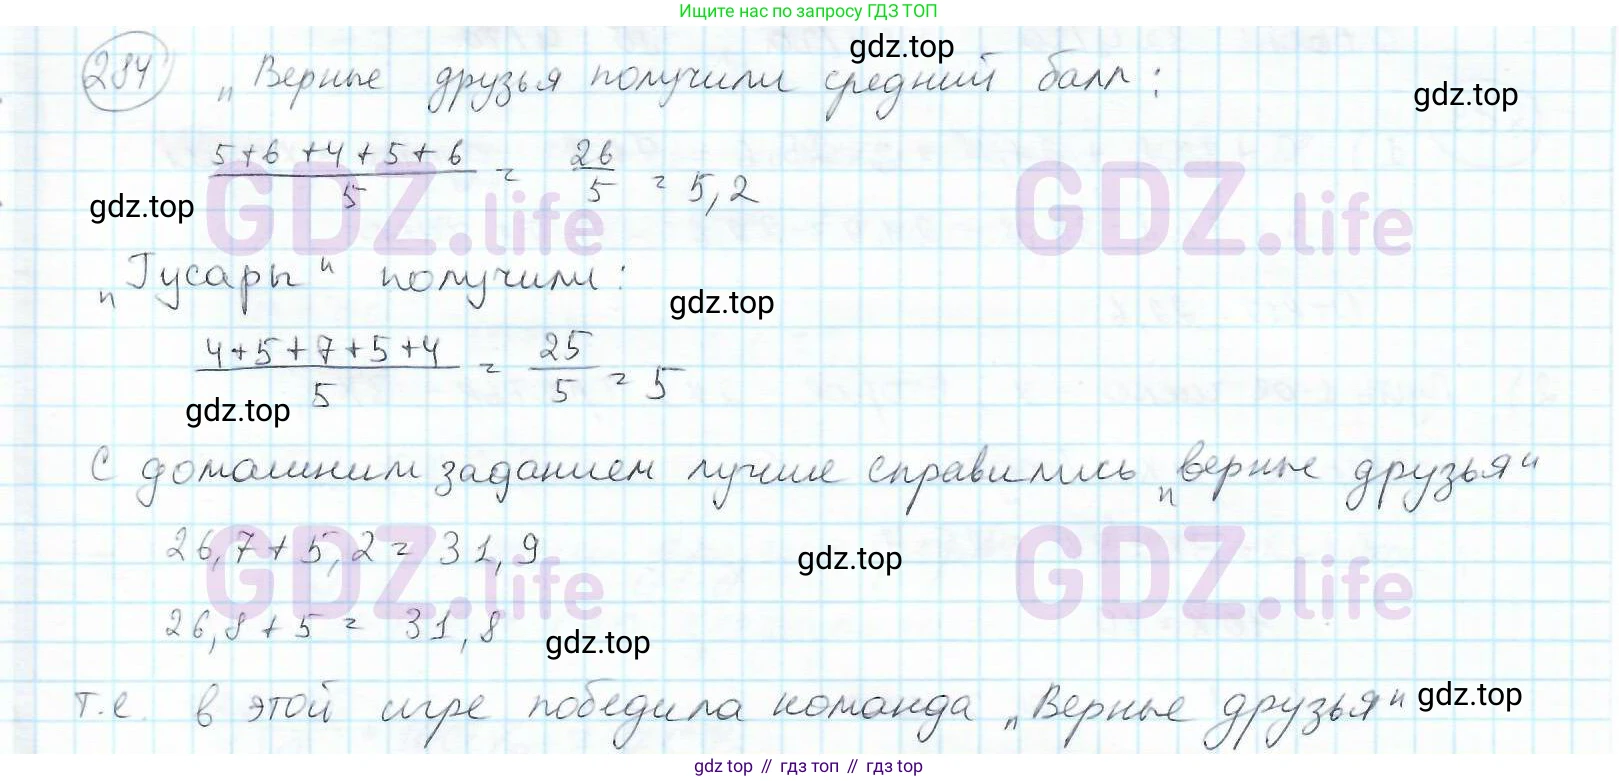 Ищите нас по запросу ГДЗ ТОП
284 „Верные друзья получили средний балл:
gdz.top
gdz.top
5+6+4+5+6 / 5 = 26 / 5 = 5,2
gdz.top
GDZ.life GDZ.life
„Гусары“ получили:
gdz.top
4+5+7+5+4 / 5 = 25 / 5 = 5
gdz.top
С домашним заданием лучше справились „верные друзья“
26,7 + 5,2 = 31,9
gdz.top
GDZ.life GDZ.life
26,8 + 5 = 31,8
gdz.top
т.е. в этой игре победила команда „Верные друзья“
gdz.top
gdz top // гдз топ // гдз top